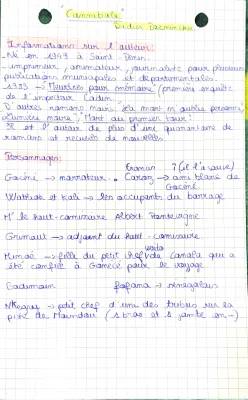 Cannibale
Didier Daeninckx
Informations sur l'auteur:
Né en 1949 à Saint Denis.
imprimeur, animateur, journaliste pour plusieurs
publications municipales et départementales.
Meurtres pour mémoire (première enquête
de l'inspecteur Cadin.
D'autres romans noirs "La mort n'oublie personne",
Lumière noire", "Mort au premier tour".
Il est l'auteur de plus d'une quarantaine de
romans et recueils de nouvelles.
Personnages:
? (et l'a sauvé)
Gocéné → narrateur . Caroz → ami blanc de
Gocéné
Wathiock et Kali → les occupants du barrage
Mr le haut-commissaire Albert Pontevigne
Grimaut → adjoint du haut-commissaire
Minoé → fille du petit chef de Canala qui a
été confiée à Gocéné pour le voyage
Badimoin fofana → sénégalais
→ petit chef d'une des tribus sur la
piste de